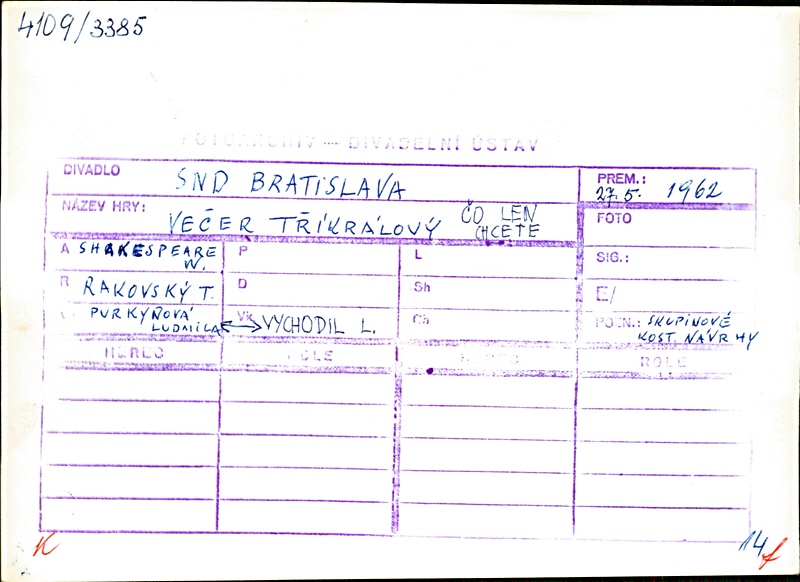 4109/3385
FOTOARCHIV — DIVADELNÍ ÚSTAV
DIVADLO SND BRATISLAVA
PREM.: 27.5. 1962
NÁZEV HRY: VEČER TŘÍKRÁLOVÝ ČO LEN CHCETE
FOTO
A SHAKESPEARE W.
P
L
SIG.:
R RAKOVSKÝ T.
D
Sh
E/
PURKYŇOVÁ LUDMILA
Vk VYCHODIL L.
Ch
POZN.: SKUPINOVÉ KOST. NÁVRHY
HEREC ROLE HEREC ROLE
K
14 f